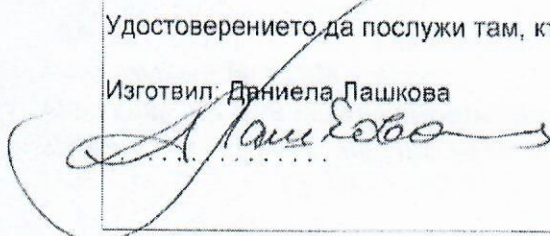 Удостоверението да послужи там, к
Изготвил: Даниела Лашкова
Лашкова